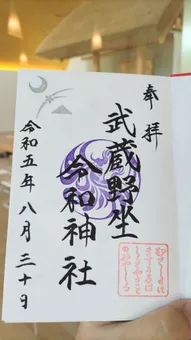 奉拝
武蔵野坐
令和神社
令和五年八月三十日